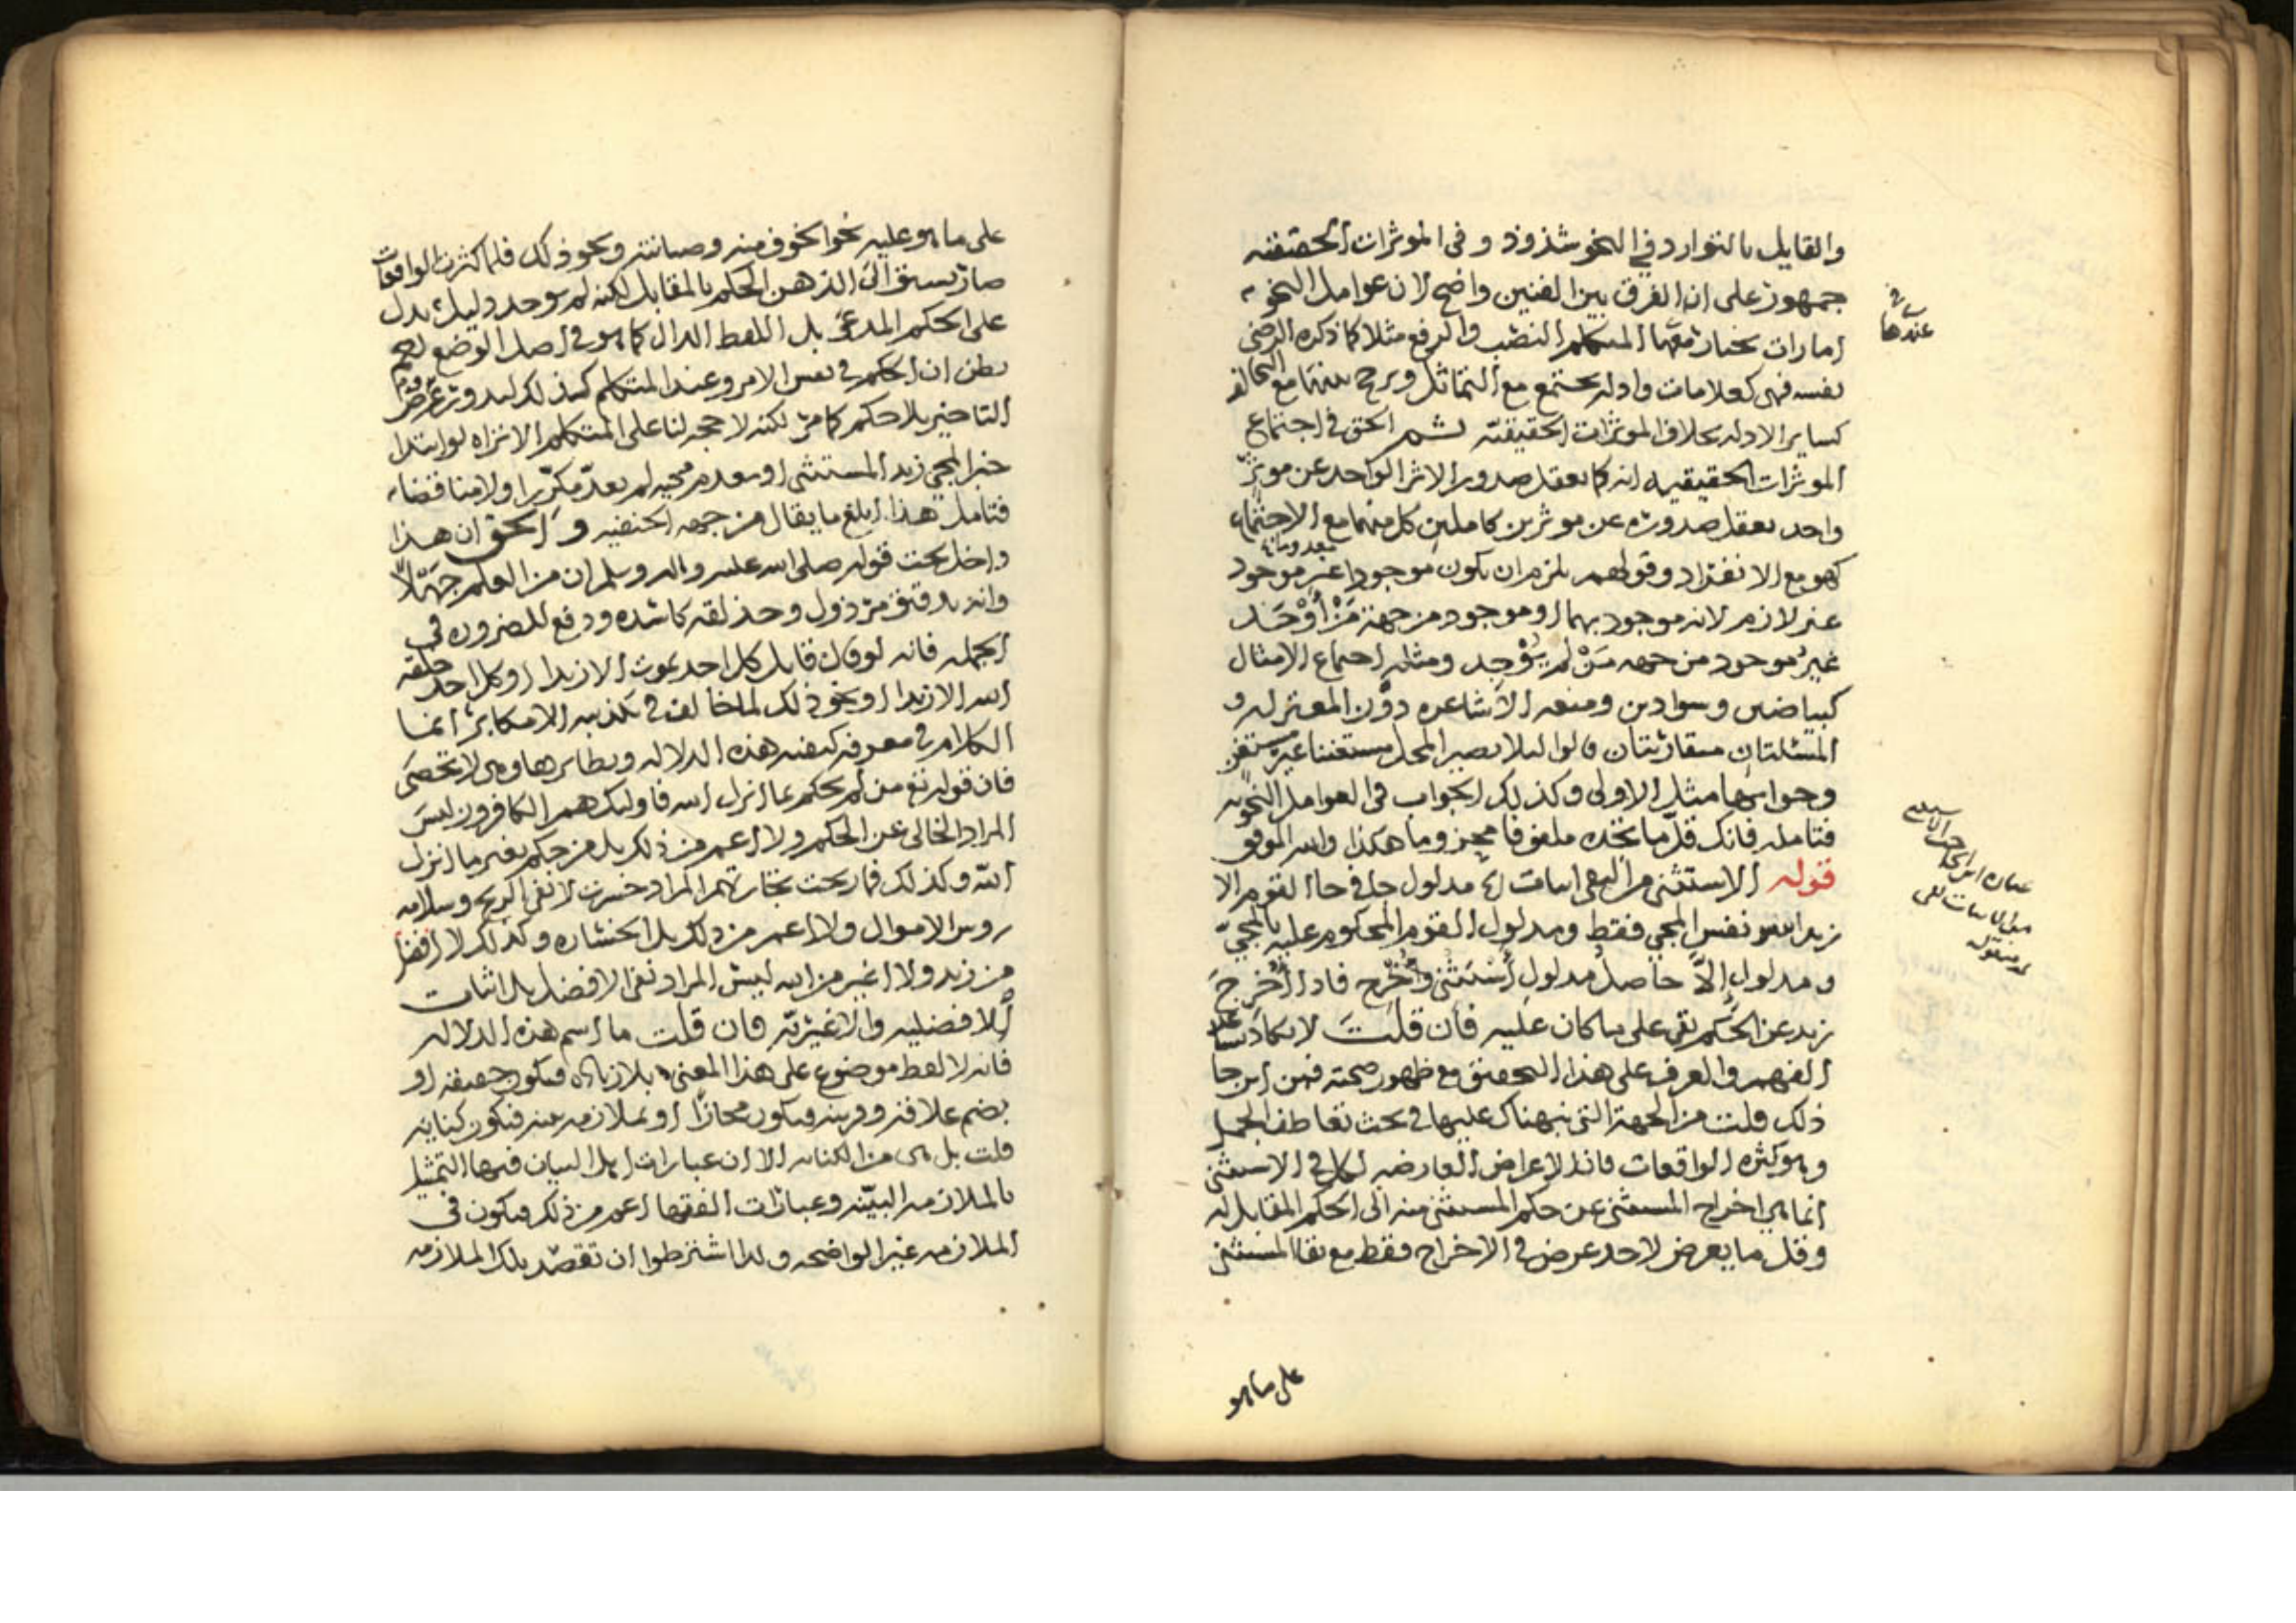 والقايل بالتوارد في النحو شذوذ وفى الموثرات الحقيقيه
جمهور على ان الفرق بين الفنين واضح لان عوامل النحو
امارات يختار معها المتكلم النصب والرفع مثلا كما ذكره الرضى
نفسه فهى كعلامات وادله تجتمع مع التماثل ويرجح بينها مع التخالف
كساير الادله بخلاف الموثرات الحقيقيه ثم الحق في اجتماع
الموثرات الحقيقيه انه كما يعقل صدور الاثر الواحد عن موثر
واحد يعقل صدوره عن موثرين كاملين كل منهما مع الاجتماع
كهو مع الانفراد وقولهم يلزم ان يكون موجودا غير موجود
غير لازم لانه موجود بهما او موجود من جهة مَنْ أَوْجَدَ
غيرُ موجود من جهه مَنْ لم يُوْجِد ومثله اجتماع الامثال
كبياضين وسوادين ومنعه الاشاعره دون المعتزله و
المسئلتان متقاربتان قالوا ليلا يصير المحل مستغنيا غير مستغن
وجوابها مثل الاولى وكذلك الجواب فى العوامل النحويه
فتامله فانك قلّ ما تجده ملفوفا وما هكذا والله الموفق
قوله الاستثنى من النفى اثبات مدلول جا في جاا القوم الا
زيدا نفس المجي فقط ومدلول القوم المحكوم عليه بالمجي
ومدلول إلاّ حاصل مدلول أستثنى وأُخرج فاذا أُخرِجَ
زيد عن الحكم بقى على ما كان عليه فان قلتَ لا يكاد
الفهم والعرف على هذا التحقيق مع ظهور صحته فمن اين جا
ذلك قلت من الجهة التى نبهناك عليها في بحث تعاطف الجمل
وهو كثره الواقعات فان الاعراض العارضه لكل في الاستثنى
انما هي اخراج المستثنى عن حكم المستثنى منه الى الحكم المقابل له
وقل ما يعرض لاحد عرض في الاخراج فقط مع بقا المستثنى
عندها
على ما هو
على ما هو عليه نحو الخوف منه وصيانته ونحو ذلك فلما كثرت الواقعات
صار يسبق الى الذهن الحكم بالمقابل لكنه لم يوجد دليل يدل
على الحكم المدعى بل اللفظ الدال كما هو في اصل الوضع
يظن ان الحكم في نفس الامر وعند المتكلم كذلك
التاخير بلا حكم كما مر لكنه لا حجه لنا على المتكلم الا تراه لو ابتدا
خبرا لمجي زيد المستثنى او بعدم مجيه لم يعدّ مكرّرا ولا مناقضا
فتامل هذا ابلغ ما يقال من جهه الحنفيه و الحق ان هذا
داخل تحت قوله صلى الله عليه واله وسلم ان من العلم جهّلاً
وانه تدقيق مرذول وحذلقه كاسده ودفع للضروره في
الجمله فانه لو قال قايل كل احد يموت الا زيدا او كل احد خلقه
الله الا زيدا او نحو ذلك لما خالف في تكذيبه الا مكابر انما
الكلام في معرفه كيفيه هذه الدلاله ونظايرها وهى لا تحصَى
فان قوله تع من لم يحكم بما انزل الله فاوليك هم الكافرون ليسَ
المراد الخالى عن الحكم ولا اعم من ذلك بل من حكم بغير ما انزل
الله وكذلك فما ربحت تجارتهم المراد خسرت لا نفى الربح وسلامه
روس الاموال ولا اعم من ذلك بل الخساره وكذلك لا افضل
من زيد ولا اغير من الله ليس المراد نفى الافضل بل اثبات
الافضليه والاغيريّه فان قلت ما اسم هذه الدلاله
فانه لا لفظ موضوع على هذا المعنى بلا زياده فيكون حقيقه او
بضم علاقه وقرينه فيكون مجازاً او بملازمه بينه فيكون كنايه
قلت بل هى من الكنايه الا ان عبارات اهل البيان فيها التمثيل
بالملازمه البيّنه وعبارات الفقها اعم من ذلك فيكون في
الملازمه غير الواضحه ولذا اشترطوا ان تقصد بتلك الملازمه